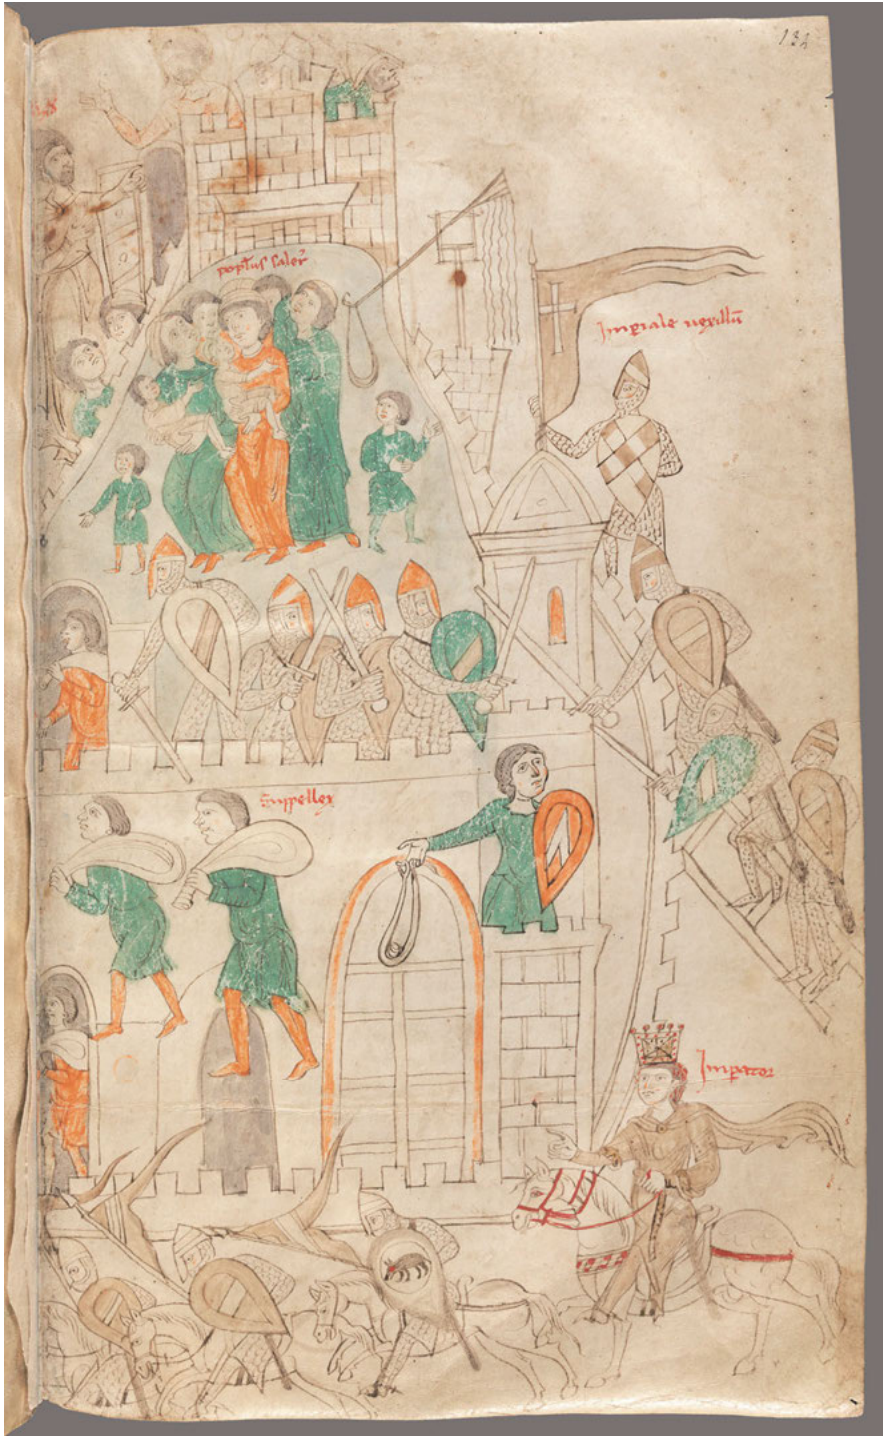 132
popl'us saler̄
Imꝑiale uexillū
Suppellex
Imꝑator